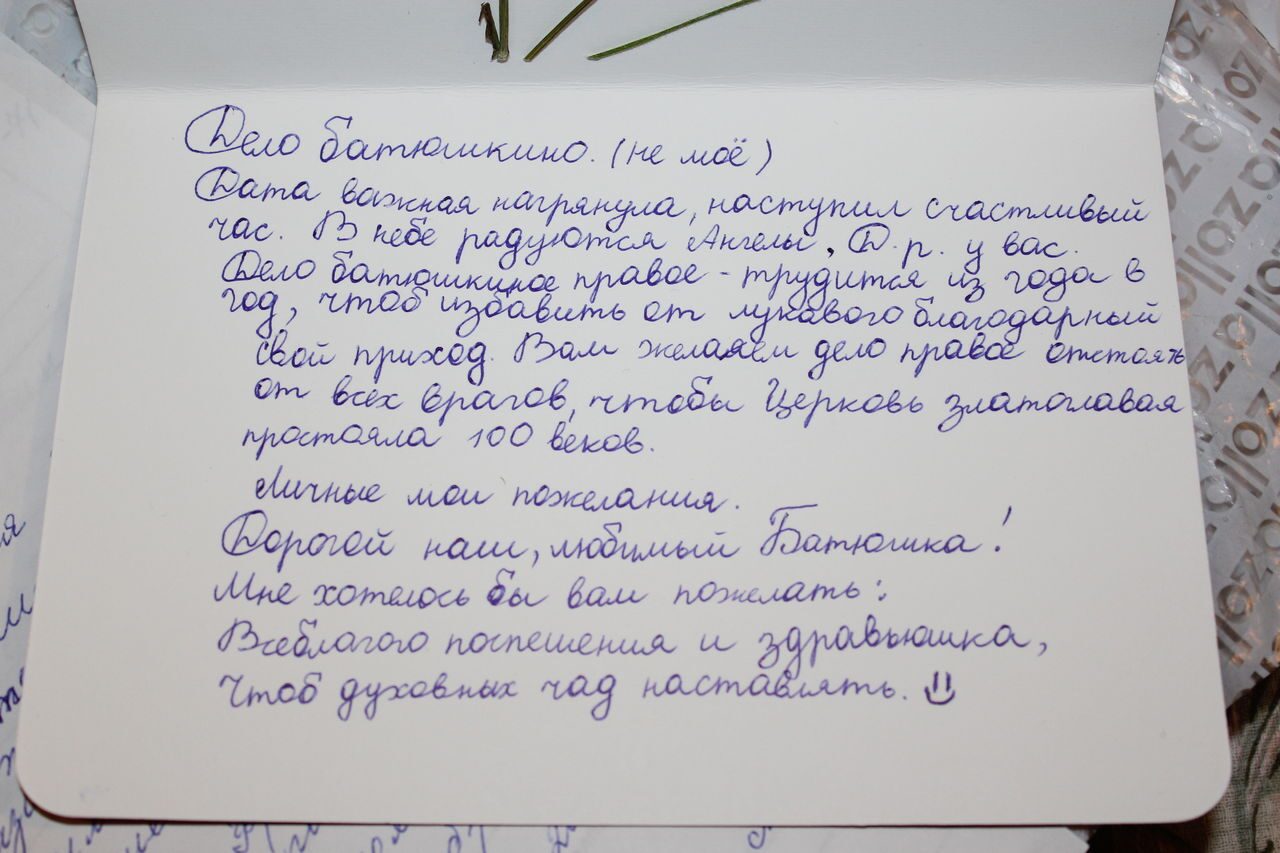 Дело батюшкино. (не моё)
Дата важная нагрянула, наступил счастливый
час. В небе радуются Ангелы. Д.р. у вас.
Дело батюшкиное правое - трудится из года в
год, чтоб избавить от лукавого благодарный
свой приход. Вам желаем дело правое отстоять
от всех врагов, чтобы Церковь златоглавая
простояла 100 веков.
Личные мои пожелания.
Дорогой наш, любимый Батюшка!
Мне хотелось бы вам пожелать:
Всеблагого поспешения и здравьюшка,
Чтоб духовных чад наставлять.